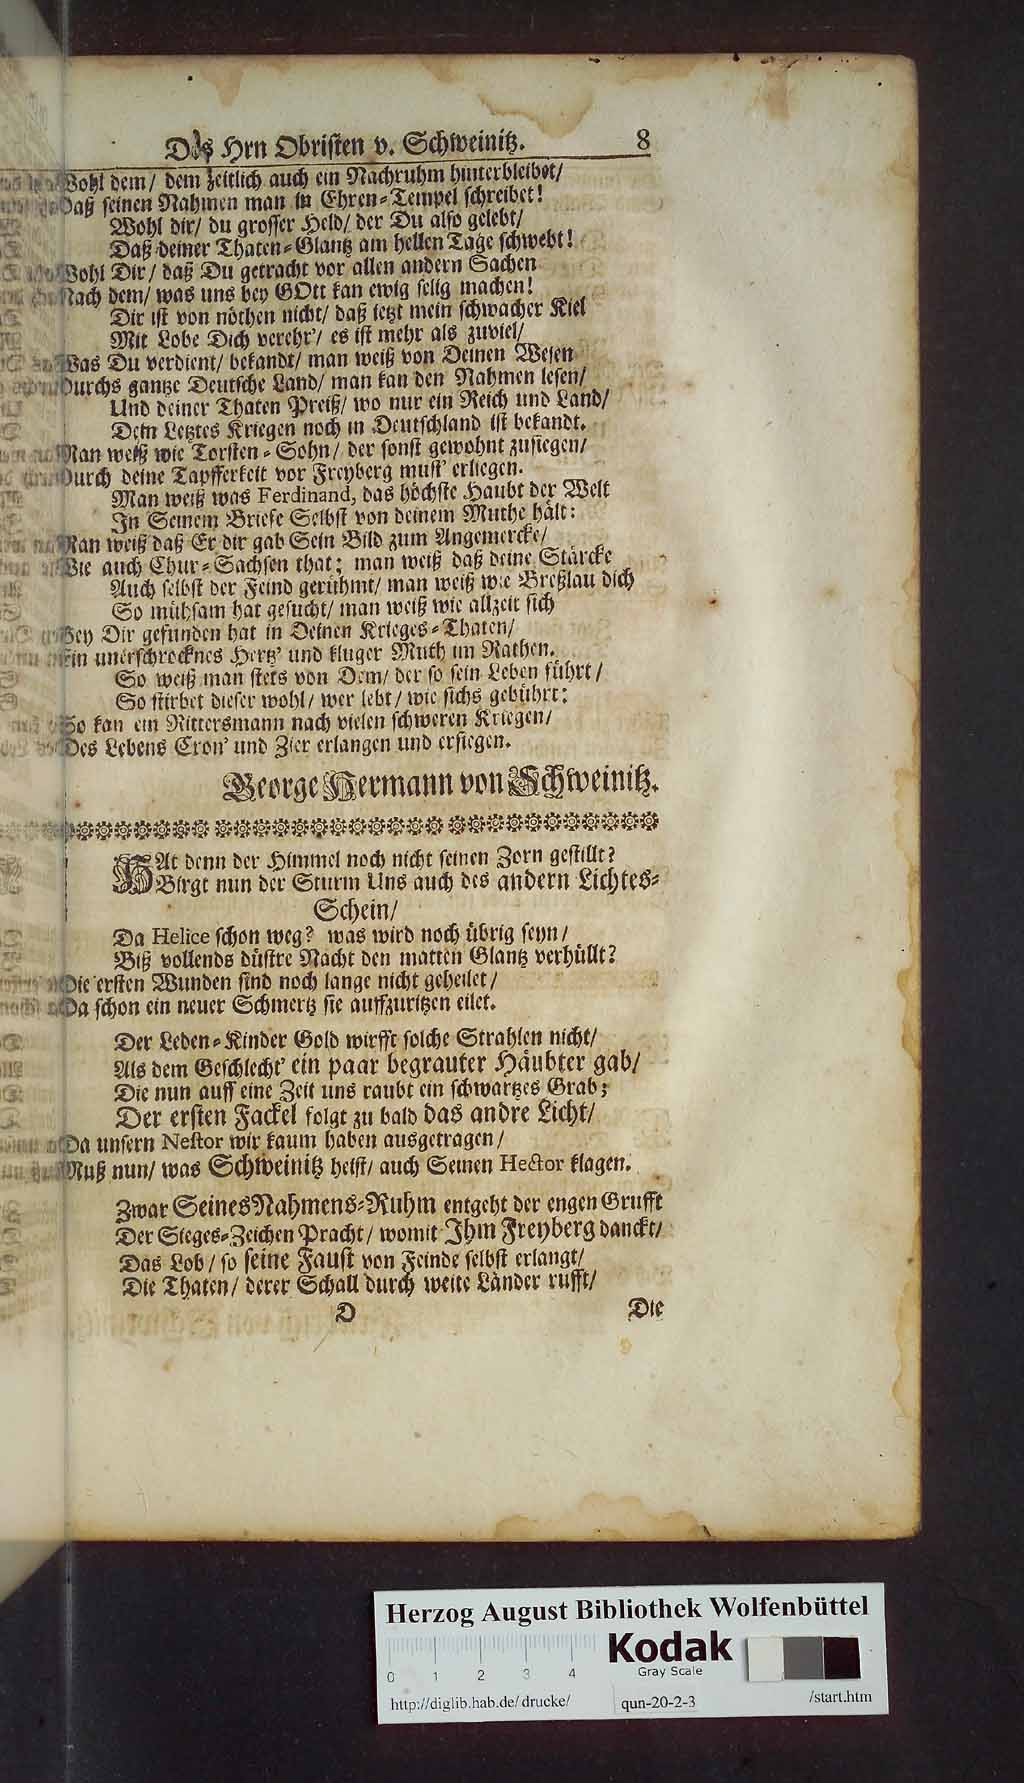 Des Hrn Obristen v. Schweinitz. 8
Wohl dem/ dem zeitlich auch ein Nachruhm hinterbleibet/
Daß seinen Nahmen man in Ehren-Tempel schreibet!
Wohl dir/ du grosser Held/ der Du also gelebt/
Daß deiner Thaten-Glantz am hellen Tage schwebt!
Wohl Dir/ daß Du getracht vor allen andern Sachen
Nach dem/ was uns bey GOtt kan ewig selig machen!
Dir ist von nöthen nicht/ daß jetzt mein schwacher Kiel
Mit Lobe Dich verehr’/ es ist mehr als zuviel/
Was Du verdient/ bekandt/ man weiß von Deinen Wesen
Durchs gantze Deutsche Land/ man kan den Nahmen lesen/
Und deiner Thaten Preiß/ wo nur ein Reich und Land/
Dein Letztes Kriegen noch in Deutschland ist bekandt.
Man weiß wie Torsten-Sohn/ der sonst gewohnt zusiegen/
Durch deine Tapfferkeit vor Freyberg must’ erliegen.
Man weiß was Ferdinand, das höchste Haubt der Welt
In Seinem Briefe Selbst von deinem Muthe hält:
Man weiß daß Er dir gab Sein Bild zum Angemercke/
Wie auch Chur-Sachsen that; man weiß daß deine Stärcke
Auch selbst der Feind gerühmt/ man weiß wie Breßlau dich
So mühsam hat gesucht/ man weiß wie allzeit sich
Bey Dir gefunden hat in Deinen Krieges-Thaten/
Ein unerschrocknes Hertz’ und kluger Muth im Rathen.
So weiß man stets von Dem/ der so sein Leben führt/
So stirbet dieser wohl/ wer lebt/ wie sichs gebührt:
So kan ein Rittersmann nach vielen schweren Kriegen/
Des Lebens Cron’ und Zier erlangen und ersiegen.
George Hermann von Schweinitz.
HAt denn der Himmel noch nicht seinen Zorn gestillt?
Birgt nun der Sturm Uns auch des andern Lichtes-
Schein/
Da Helice schon weg? was wird noch übrig seyn/
Biß vollends düstre Nacht den matten Glantz verhüllt?
Die ersten Wunden sind noch lange nicht geheilet/
Da schon ein neuer Schmertz sie auffzuritzen eilet.
Der Leden-Kinder Gold wirfft solche Strahlen nicht/
Als dem Geschlecht’ ein paar begrauter Häubter gab/
Die nun auff eine Zeit uns raubt ein schwartzes Grab;
Der ersten Fackel folgt zu bald das andre Licht/
Da unsern Nestor wir kaum haben ausgetragen/
Muß nun/ was Schweinitz heist/ auch Seinen Hector klagen.
Zwar Seines Nahmens-Ruhm entgeht der engen Grufft
Der Sieges-Zeichen Pracht/ womit Ihm Freyberg danckt/
Das Lob/ so seine Faust von Feinde selbst erlangt/
Die Thaten/ derer Schall durch weite Länder rufft/
D Die
Herzog August Bibliothek Wolfenbüttel
Kodak
Gray Scale
0 1 2 3 4
http://diglib.hab.de/drucke/ qun-20-2-3 /start.htm